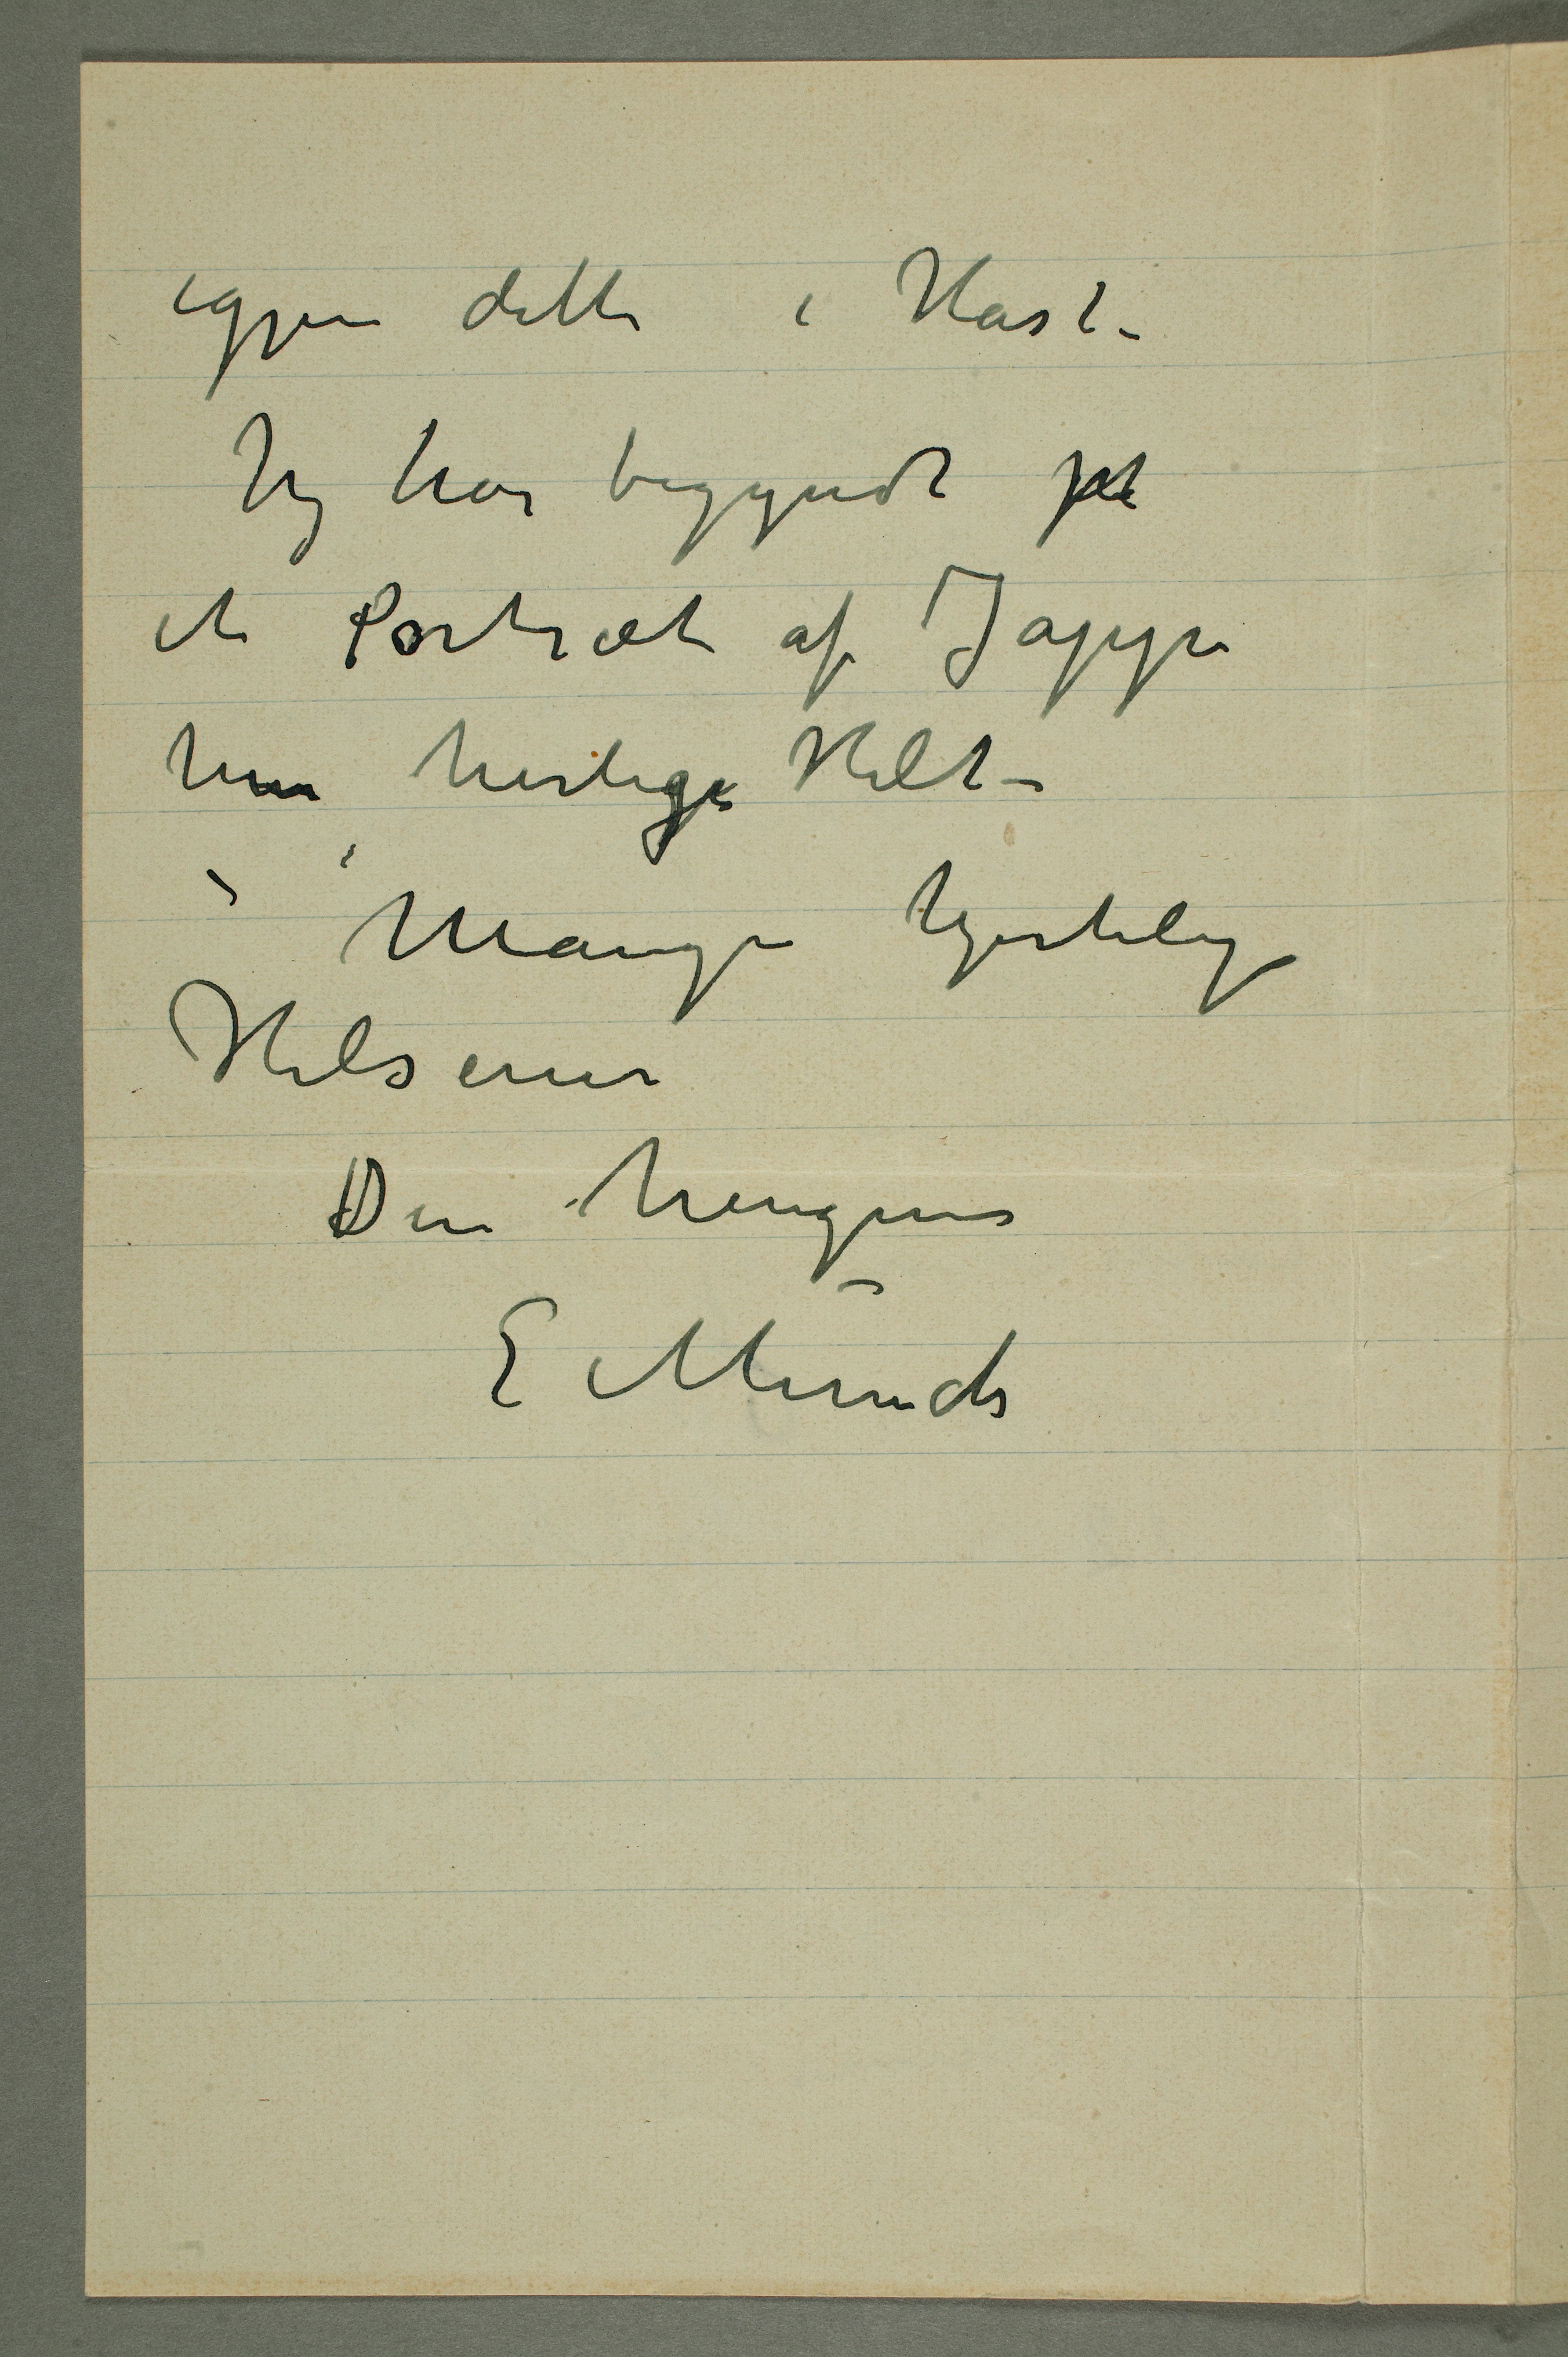 igjen dette i Hast –
Jeg har begyndt på
et Portræt af Jappe
hin herlige Helt –
Mange hjertelig
Hilsener
Din hengivne
E Munch